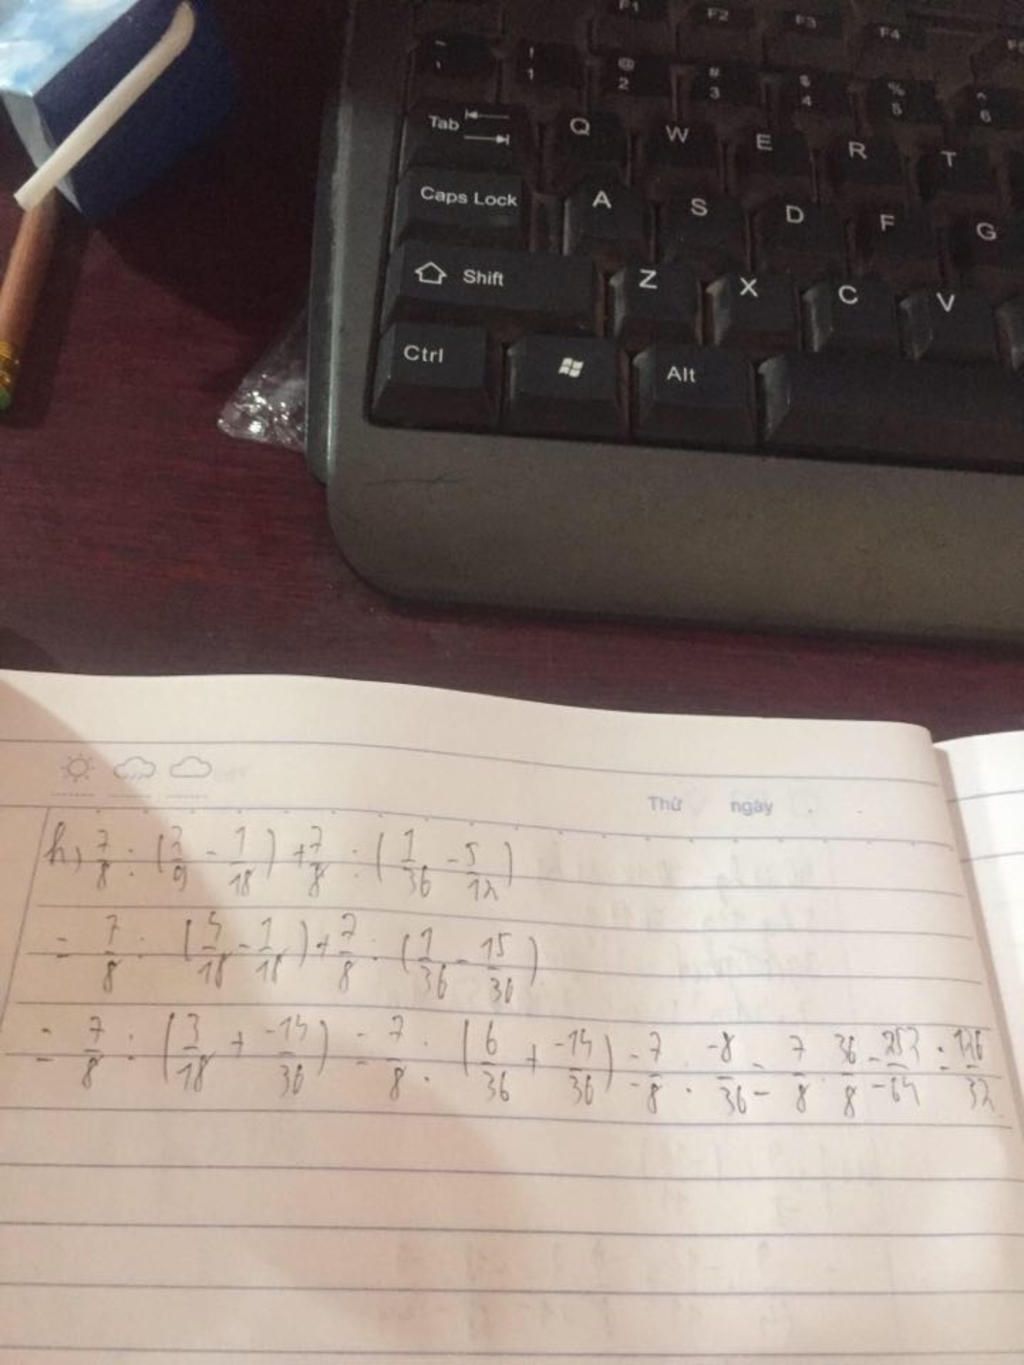 F1 F2 F3 F4 F5
~ ` ! 1 @ 2 # 3 $ 4 % 5 ^ 6
Tab Q W E R T
Caps Lock A S D F G
Shift Z X C V
Ctrl Alt
Thứ ngày
h, 7/8 : (2/9 - 1/18) + 7/8 : (1/36 - 5/12)
= 7/8 : (4/18 - 1/18) + 7/8 : (1/36 - 15/36)
= 7/8 : (3/18 + -14/36) = 7/8 : (6/36 + -14/36) = 7/8 : -8/36 = 7/8 . 36/8 = 252/-64 = 126/32